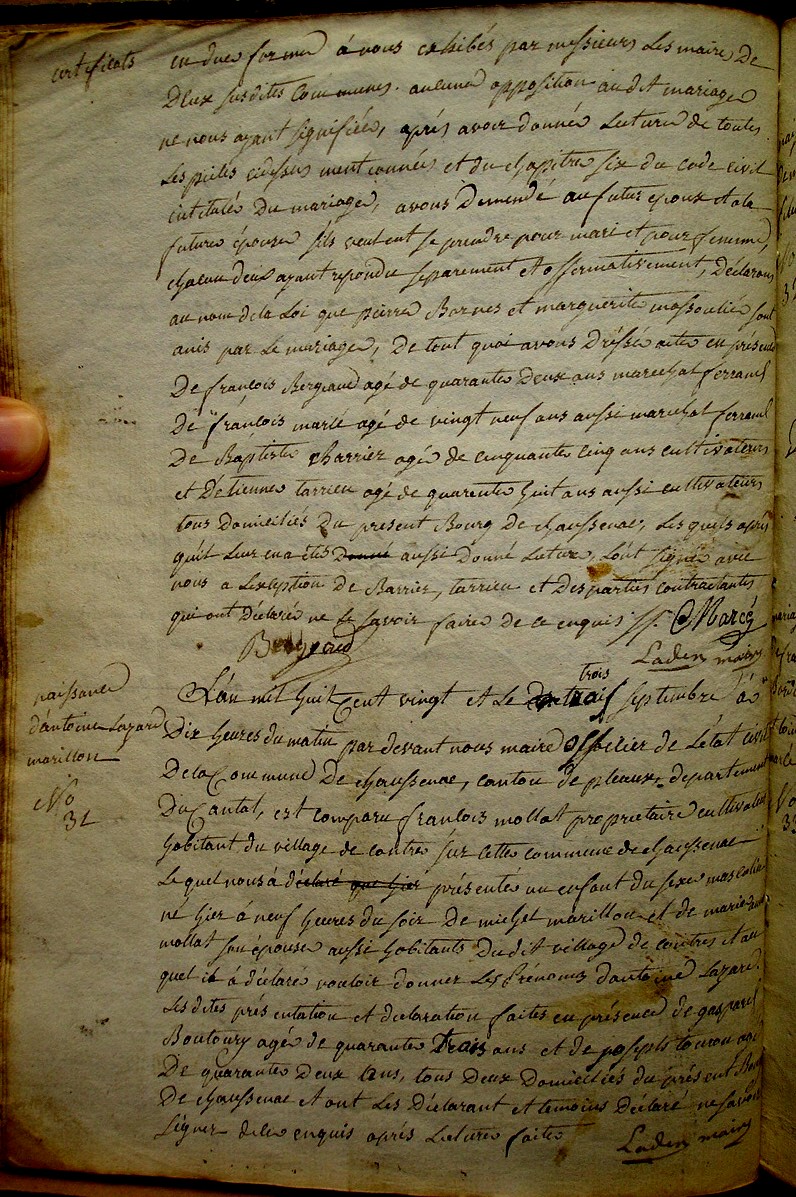 certificats en due forme à nous exhibés par messieurs Les maires De
Deux susdites Communes. aucune opposition audit mariage
ne nous ayant signifiée, après avoir donnée Lecture de toutes
Les pieces cidessus mentionnées et du chapitre six du code civil
intitulé Du mariage, avons Demendé au futur epoux et a la
future épouse s'ils veulent se prendre pour mari et pour femme,
chacun deux ayant repondu separement et affermativement, Déclarons
au nom de la Loi que pierre Barnes et marguerite massoulié sont
unis par Le mariage, De tout quoi avons Dréssé acte en présence
De françois Bergeaud agé de quarante Deux ans marechal ferrand
De françois marcé agé de vingt neuf ans aussi maréchal ferrand
De Baptiste Barrier agé de cinquante cinq ans cultivateurs
et D'étienne tarrieu agé de quarente huit ans aussi cultivateurs
tous Domiciliés Du present Bourg De chaussenac, Les quels après
qu'il Leur en a étés Donné aussi Donné Lecture, L'ont signé avec
nous a L'exception De Barrier, tarrieu et Des parties contractantes
qui ont Déclaré ne Le savoir faire de ce enquis. ff. Marcé
Bergeaud
Laden maire
naissance
d'antoine Lazare
marillou
No
31
trois
L'an mil huit Cent vingt et Le septembre à
Dix heures du matin par devant nous maire officier de L'état civil
De la Commune De chaussenac, canton de pleaux, departement
Du Cantal, est comparu francois mollat propriétaire cultivateur
habitant du village de contre sur cette commune de chaussenac
Le quel nous à déclaré que hier présenté un enfant du sexe masculin
né hier à neuf heures du soir De michel marillou et de marie
mollat son épouse aussi habitants Du dit village de contres et au
quel il à déclaré vouloir donner Les Prénoms d'antoine Lazare.
Les dites présentation et déclaration faites en présence de gaspard
Boutoury agé de quarante Trois ans et de joseph tourou agé
De quarante Deux ans, tous Deux Domiciliés du présent Bourg
De chaussenac et ont Les Déclarant et temoins Déclaré ne savoir
signer de ce enquis après Lecture faite Laden maire